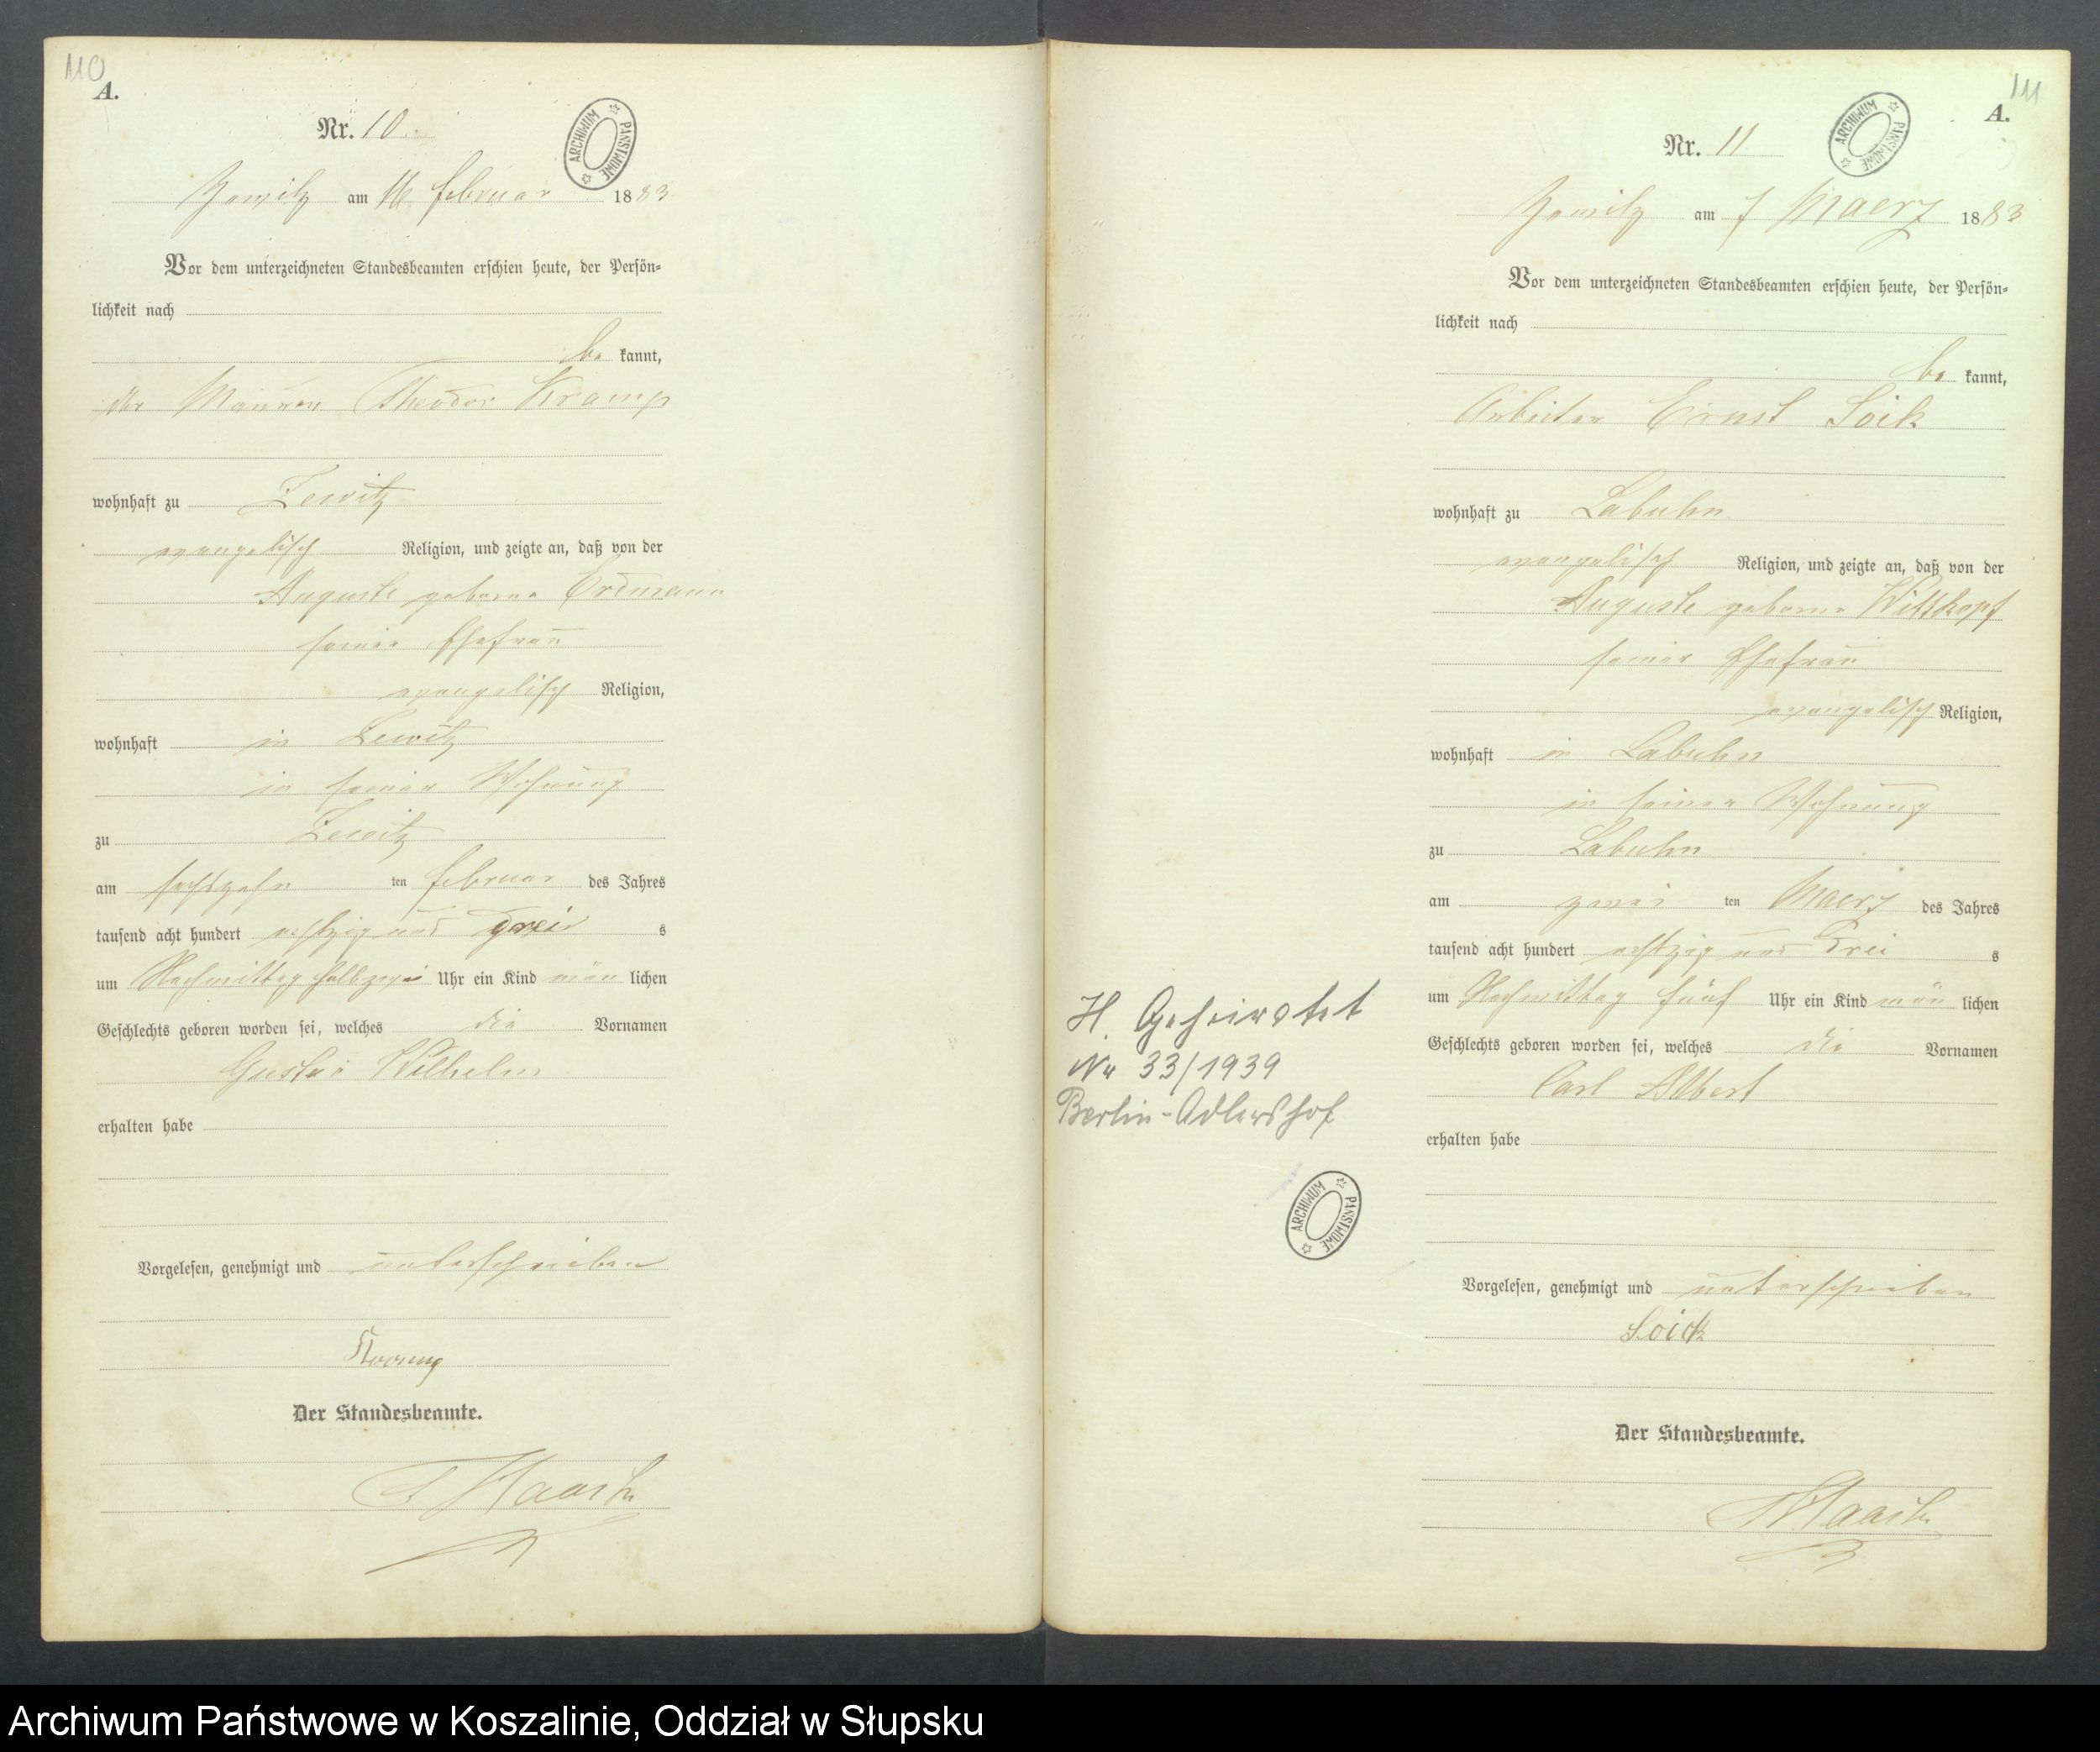 110
A.
Nr. 10.
ARCHIWUM PAŃSTWOWE
am 16 Februar 1883.
Vor dem unterzeichneten Standesbeamten erschien heute, der Persön-
lichkeit nach
be kannt,
der Maurer Theodor Kramp
wohnhaft zu Zewitz
evangelisch Religion, und zeigte an, daß von der
Auguste geborne Erdmann
seiner Ehefrau
evangelisch Religion,
wohnhaft in Zewitz
in seiner Wohnung
zu Zewitz
am sechszehn ten Februar des Jahres
tausend acht hundert achtzig und drei s
um Nachmittag halb zwei Uhr ein Kind män lichen
Geschlechts geboren worden sei, welches die Vornamen
Gustav Wilhelm
erhalten habe
Vorgelesen, genehmigt und unterschrieben
Kramp
Der Standesbeamte.
111
A.
Nr. 11
ARCHIWUM PAŃSTWOWE
am 7 Maerz 1883
Vor dem unterzeichneten Standesbeamten erschien heute, der Persön-
lichkeit nach
be kannt,
Arbeiter Ernst Loik
wohnhaft zu Labuhn
evangelisch Religion, und zeigte an, daß von der
Auguste geborne Wittkopf
seiner Ehefrau
evangelisch Religion,
wohnhaft in Labuhn
in seiner Wohnung
zu Labuhn
am zwei ten Maerz des Jahres
tausend acht hundert achtzig und drei s
um Nachmittag fünf Uhr ein Kind män lichen
Geschlechts geboren worden sei, welches die Vornamen
Carl Albert
erhalten habe
Vorgelesen, genehmigt und unterschrieben
Loick
Der Standesbeamte.
H. Geheiratet
Nr 33/1939
Berlin-Adlershof
ARCHIWUM PAŃSTWOWE
Archiwum Państwowe w Koszalinie, Oddział w Słupsku